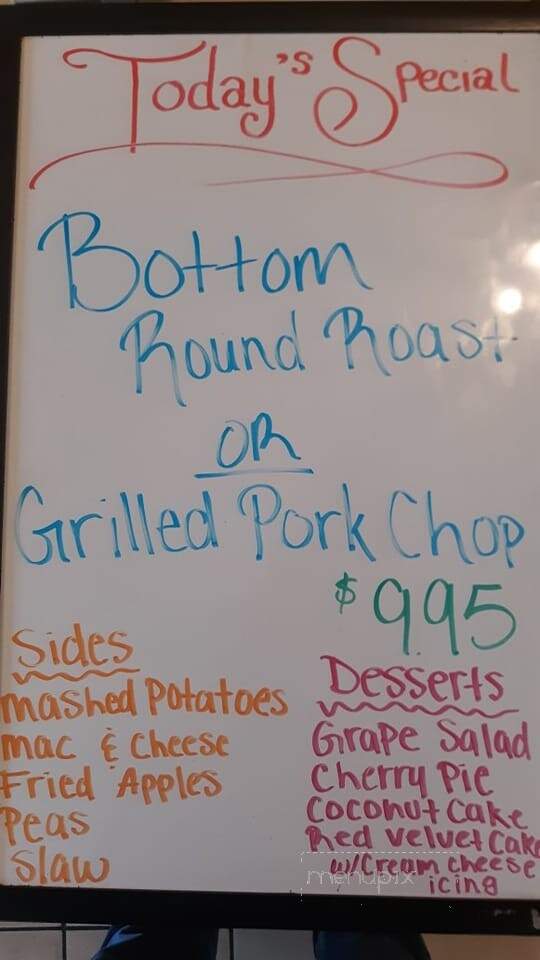 Today's Special
Bottom
Round Roast
OR
Grilled Pork Chop
$9.95
Sides
mashed Potatoes
mac & Cheese
Fried Apples
Peas
Slaw
Desserts
Grape Salad
Cherry Pie
Coconut Cake
Red Velvet Cake
w/Cream cheese
icing
menupix